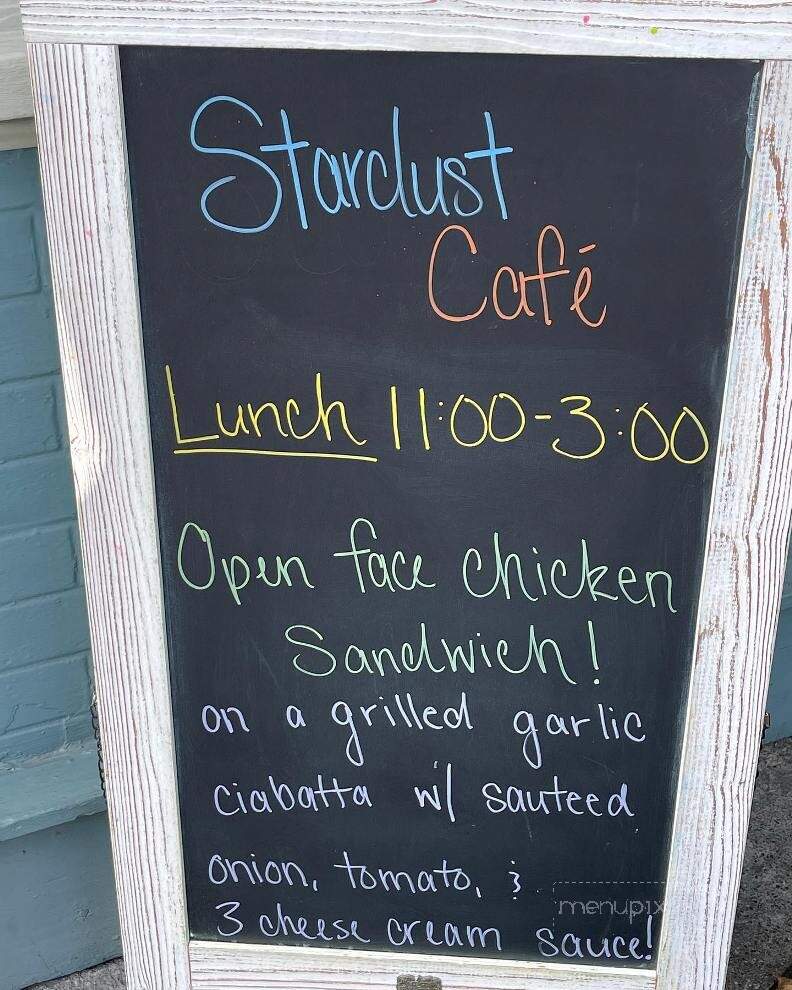 Stardust
Café
Lunch 11:00-3:00
Open face chicken
Sandwich!
on a grilled garlic
ciabatta w/ sauteed
onion, tomato, &
3 cheese cream sauce!
menupix